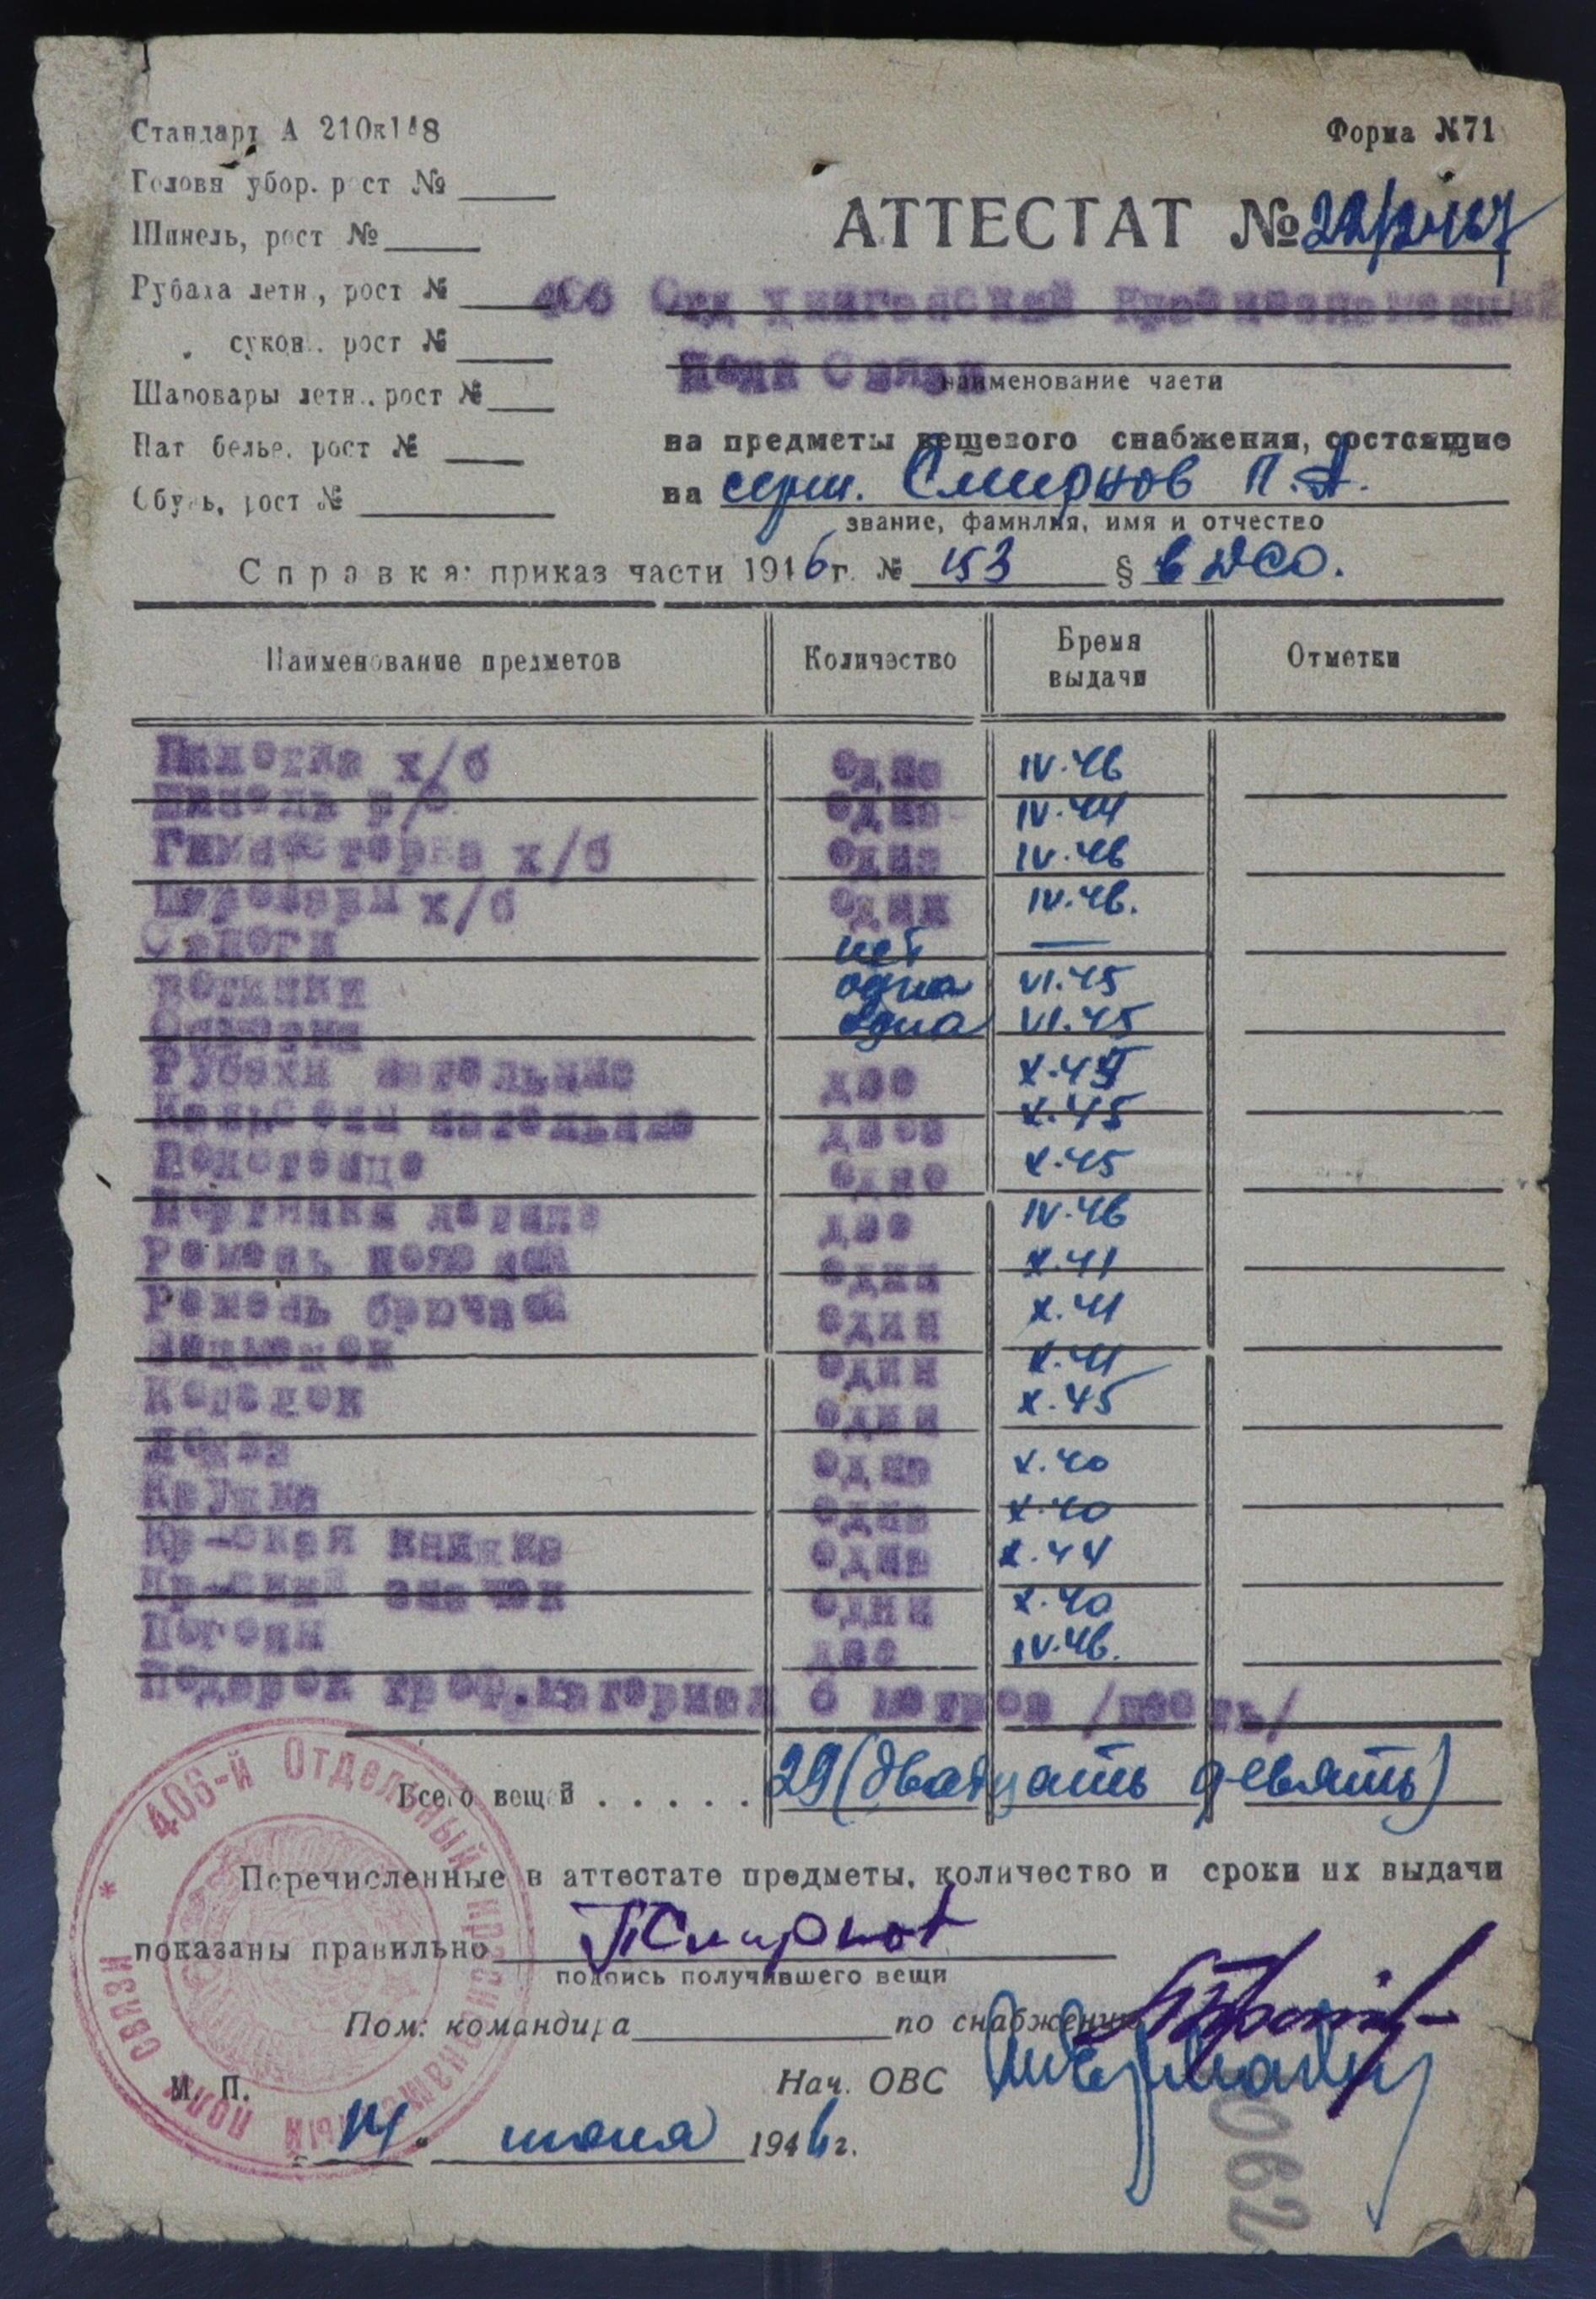 Стандарт А 210х148
Форма №71
Головн убор. рост №
Шинель, рост №
Рубаха летн., рост №
сукон.. рост №
Шаровары летн.. рост №
Нат белье, рост №
Обувь, рост №
АТТЕСТАТ № 22/2467
406 Отд Хинганский Краснознаменный
Полк Связи
наименование части
на предметы вещевого снабжения, состоящие
на серж. Смирнов П.А.
звание, фамилия, имя и отчество
Справка: приказ части 1946 г. № 153 §
Наименование предметов Количество Время выдачи Отметки
Пилотка х/б одна IV.46
Шинель р/с одна IV.44
Гимнастерка х/б одна IV.46
Шаровары х/б одни IV.46.
Сапоги нет —
Ботинки одна VI.45
одна VI.45
Рубахи нательные две X.45
Кальсоны нательные двое X.45
Полотенце одно X.45
Портянки летние две IV.46
Ремень поясной один X.41
Ремень брючной один X.41
один X.41
Котелок один X.45
Ложка одна X.40
Кружка одна X.40
Кр-ская книжка одна X.44
значек один X.40
Погоны две IV.46.
Подарок троф.материал 6 метров /шесть/
Всего вещей ..... 29 (двадцать девять)
Перечисленные в аттестате предметы, количество и сроки их выдачи
показаны правильно ПСмирнов
подпись получившего вещи
Пом. командира по снабжению
Нач. ОВС
М. П.
„14“ июня 1946 г.
406-й Отдельный Краснознаменный полк связи *
062